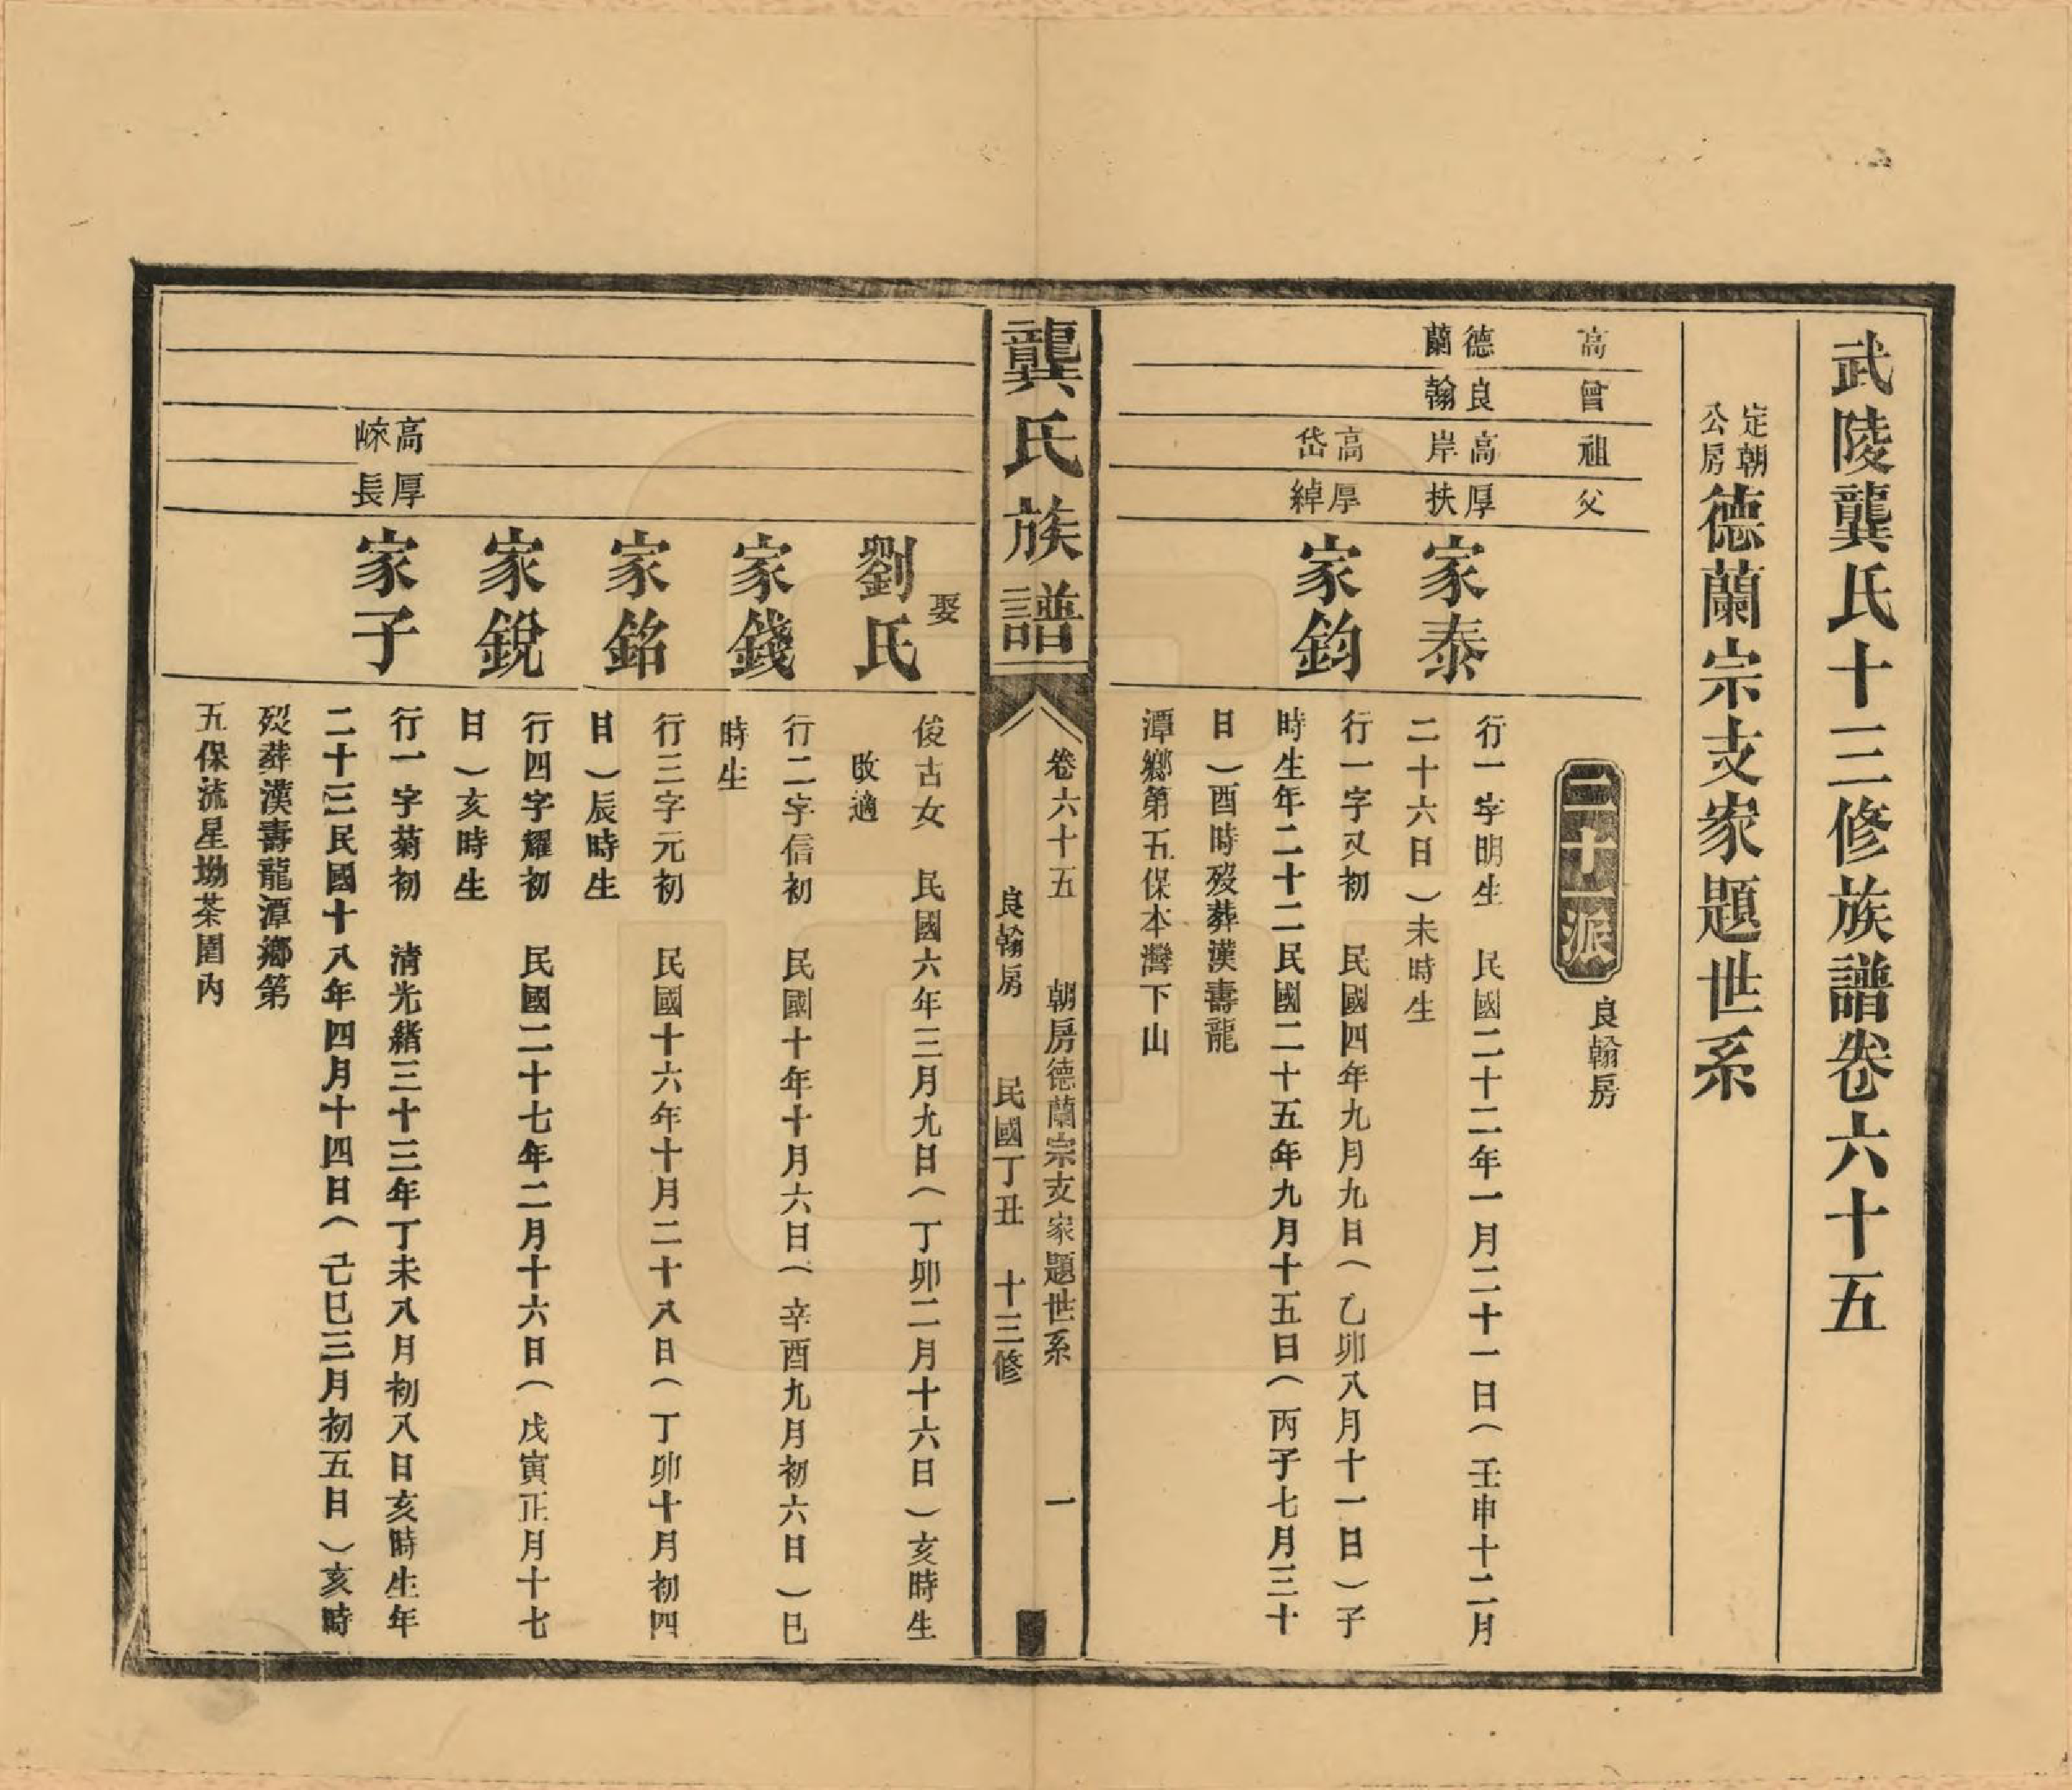 武陵龔氏十三修族譜卷六十五
定朝公房德蘭宗支家題世系
高
曾
祖
父
二十一派
良翰房
德蘭
良翰
高岸
厚扶
家泰
行一字明生 民國二十二年一月二十一日(壬申十二月
二十六日)未時生
高岱
厚綽
家鈞
行一字又初 民國四年九月九日(乙卯八月十一日)子
時生年二十二民國二十五年九月十五日(丙子七月三十
日)酉時歿葬漢壽龍
潭鄉第五保本灣下山
龔氏族譜
卷六十五 朝房德蘭宗支家題世系 一
良翰房 民國丁丑 十三修
娶
劉氏
俊古女 民國六年三月九日(丁卯二月十六日)亥時生
改適
家錢
行二字信初 民國十年十月六日(辛酉九月初六日)巳
時生
家銘
行三字元初 民國十六年十月二十八日(丁卯十月初四
日)辰時生
家銳
行四字耀初 民國二十七年二月十六日(戊寅正月十七
日)亥時生
高崍
厚長
家子
行一字菊初 清光緒三十三年丁未八月初八日亥時生年
二十三民國十八年四月十四日(己巳三月初五日)亥時
歿葬漢壽龍潭鄉第
五保流星坳茶園內